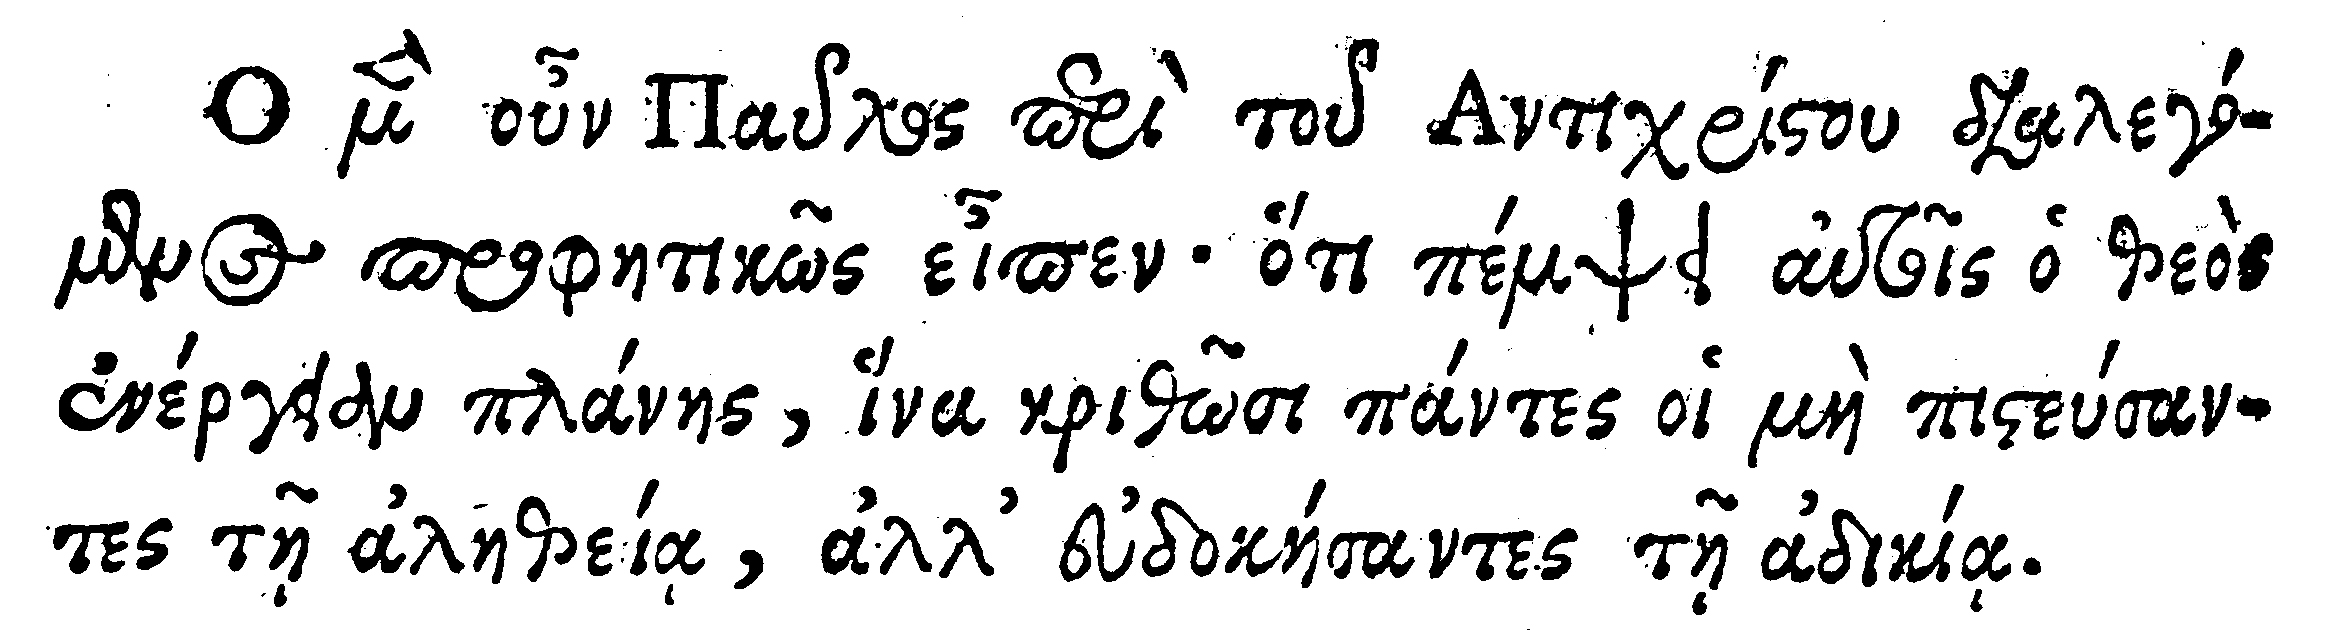 Ο μὲν οὖν Παῦλος περὶ τοῦ Αντιχρίστου διαλεγό-
μενος προφητικῶς εἶπεν· ὅτι πέμψει αὐτοῖς ὁ θεὸς
ἐνέργειαν πλάνης, ἵνα κριθῶσι πάντες οἱ μὴ πιστεύσαν-
τες τῇ ἀληθείᾳ, ἀλλ᾽ εὐδοκήσαντες τῇ ἀδικίᾳ.